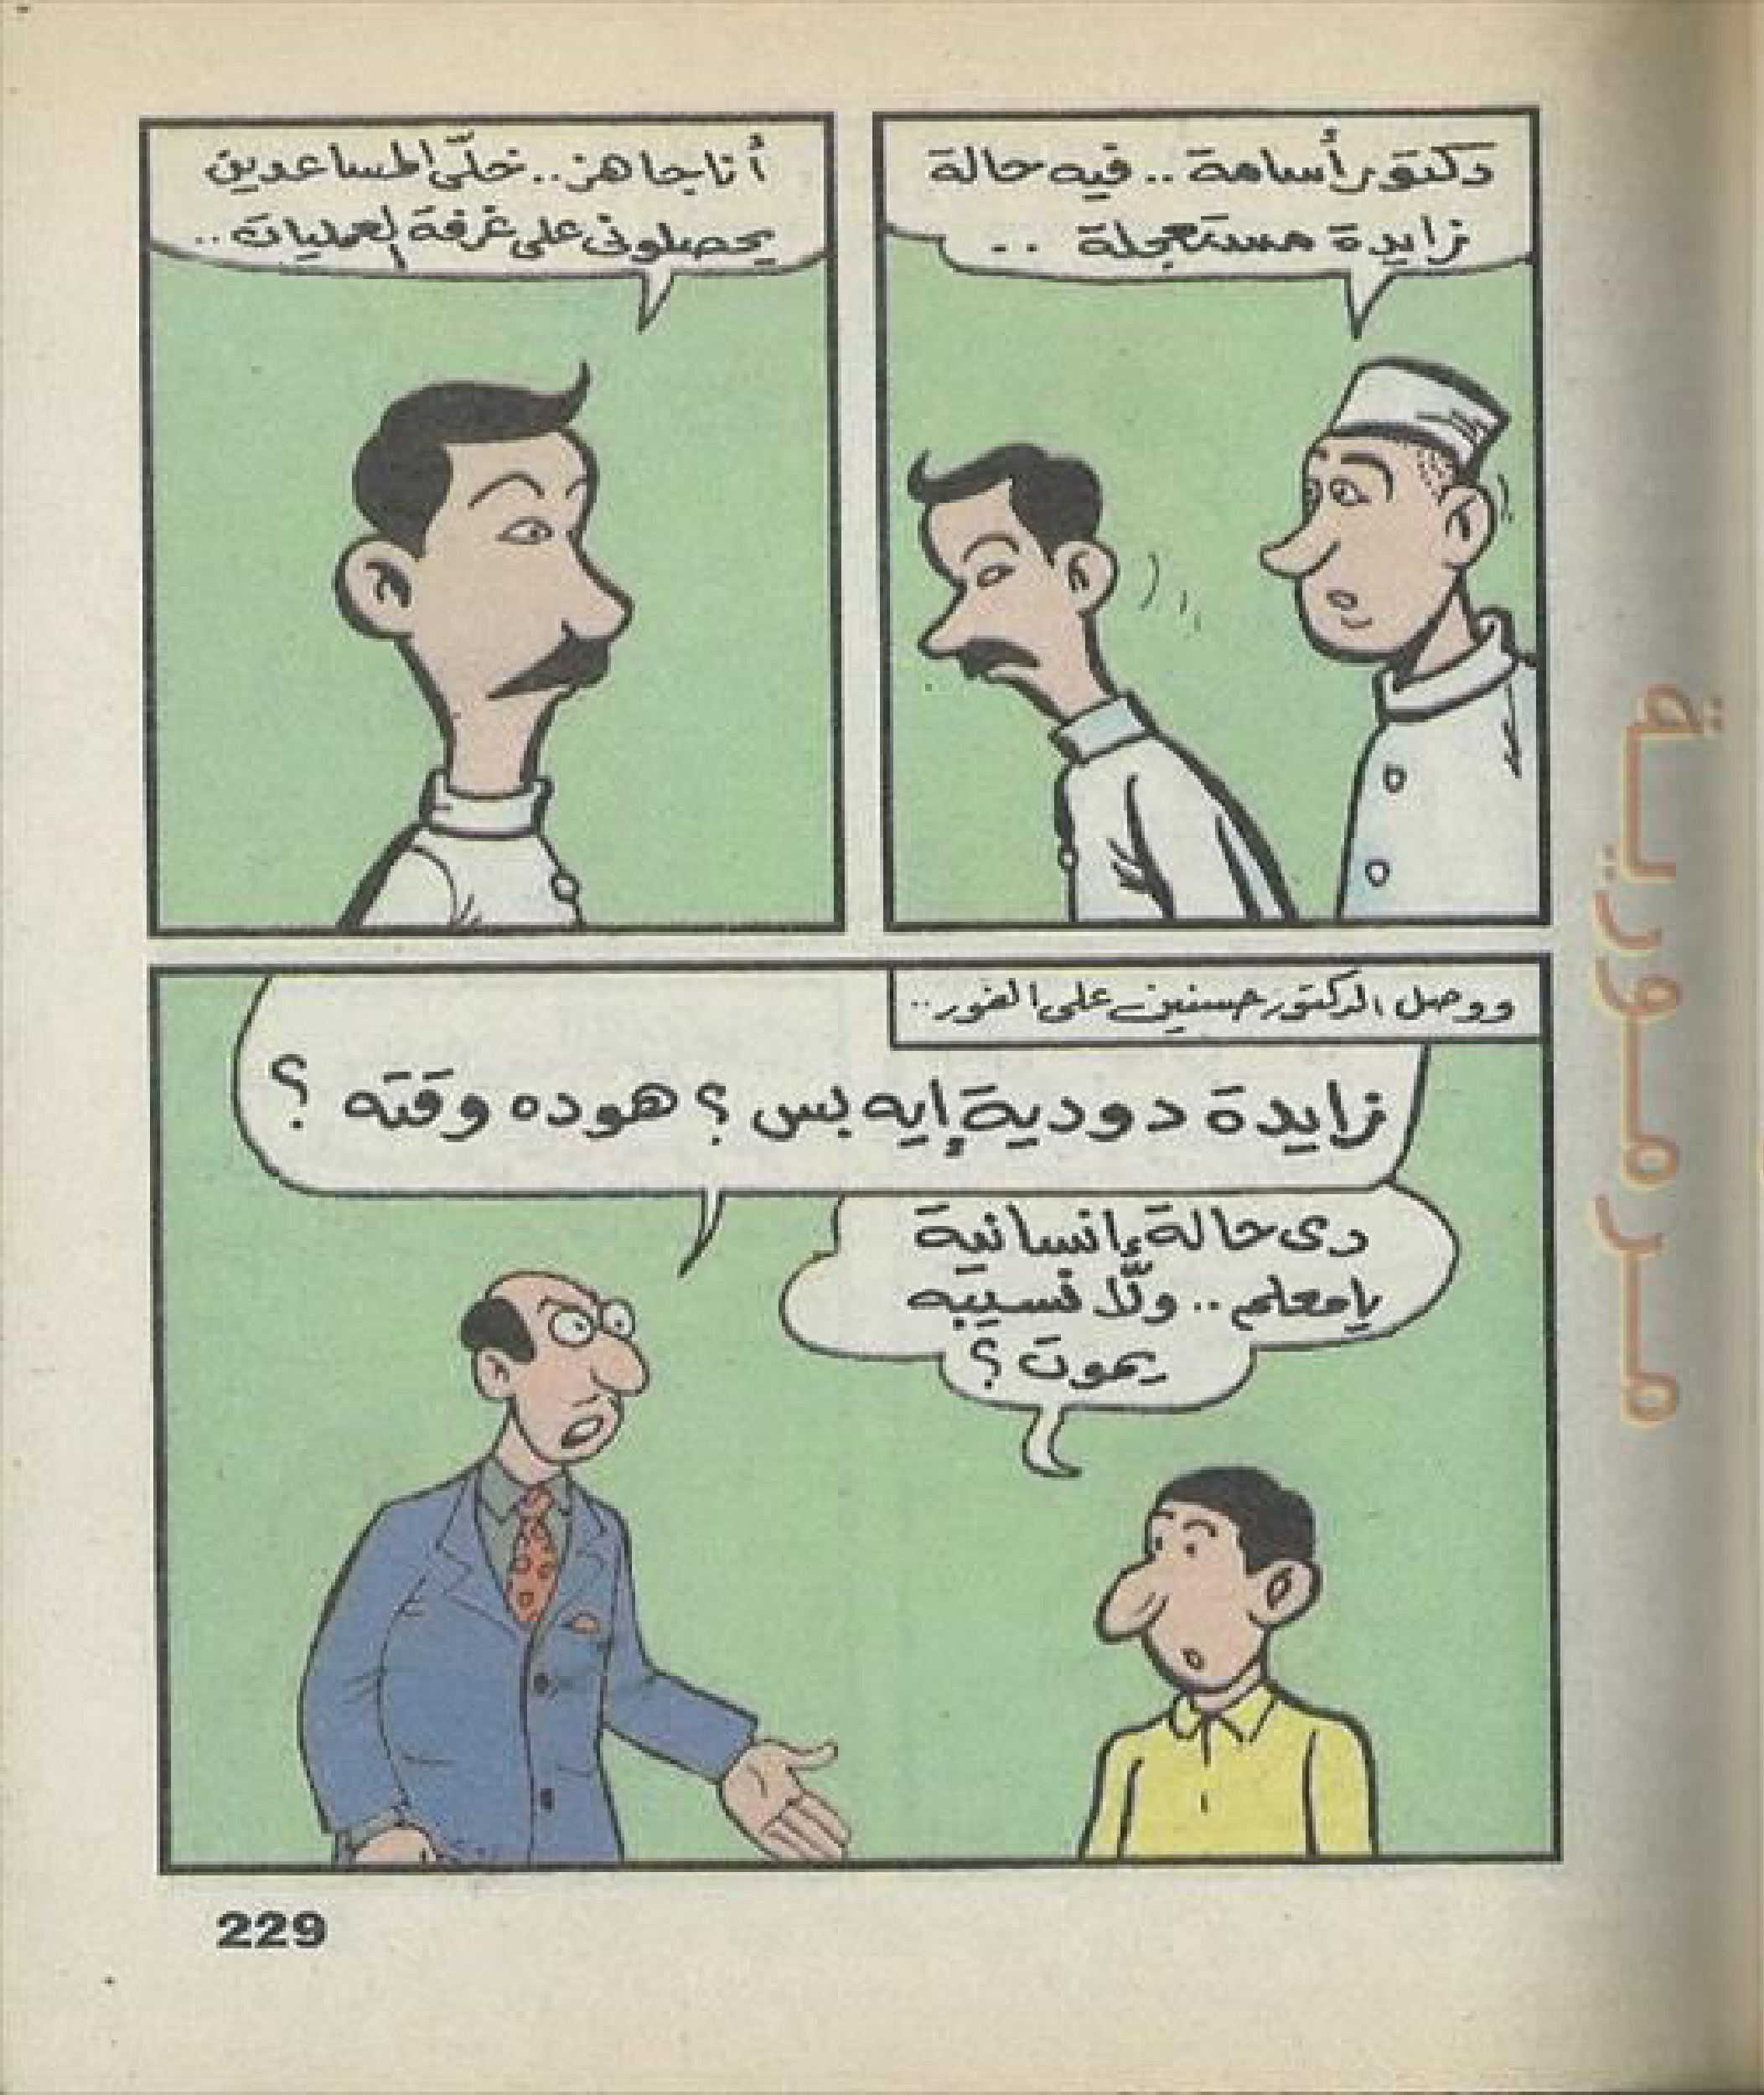 دكتور أسامة.. فيه حالة
زايدة مستعجلة ..
أنا جاهز.. خلّى المساعدين
يحصلونى على غرفة العمليات..
ووصل الدكتور حسنين على الفور..
زايدة دودية إيه بس؟ هو ده وقته؟
دى حالة إنسانية
يا معلم.. ولّا نسيبه
يموت؟
مرمورية
229